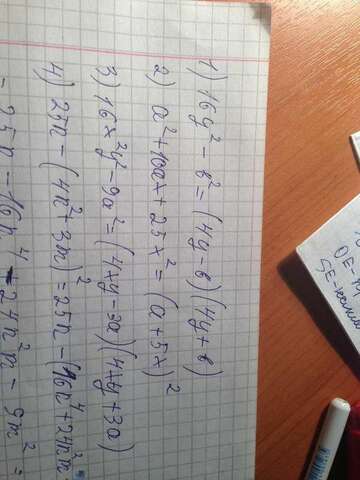 1) 16y² - b² = (4y - b)(4y + b)
2) a² + 10ax + 25x² = (a + 5x)²
3) 16x²y² - 9a² = (4xy - 3a)(4xy + 3a)
4) 25n - (4n² + 3m)² = 25n - (16n⁴ + 24n²m
= 25n - 16n⁴ - 24n²m - 9m² =